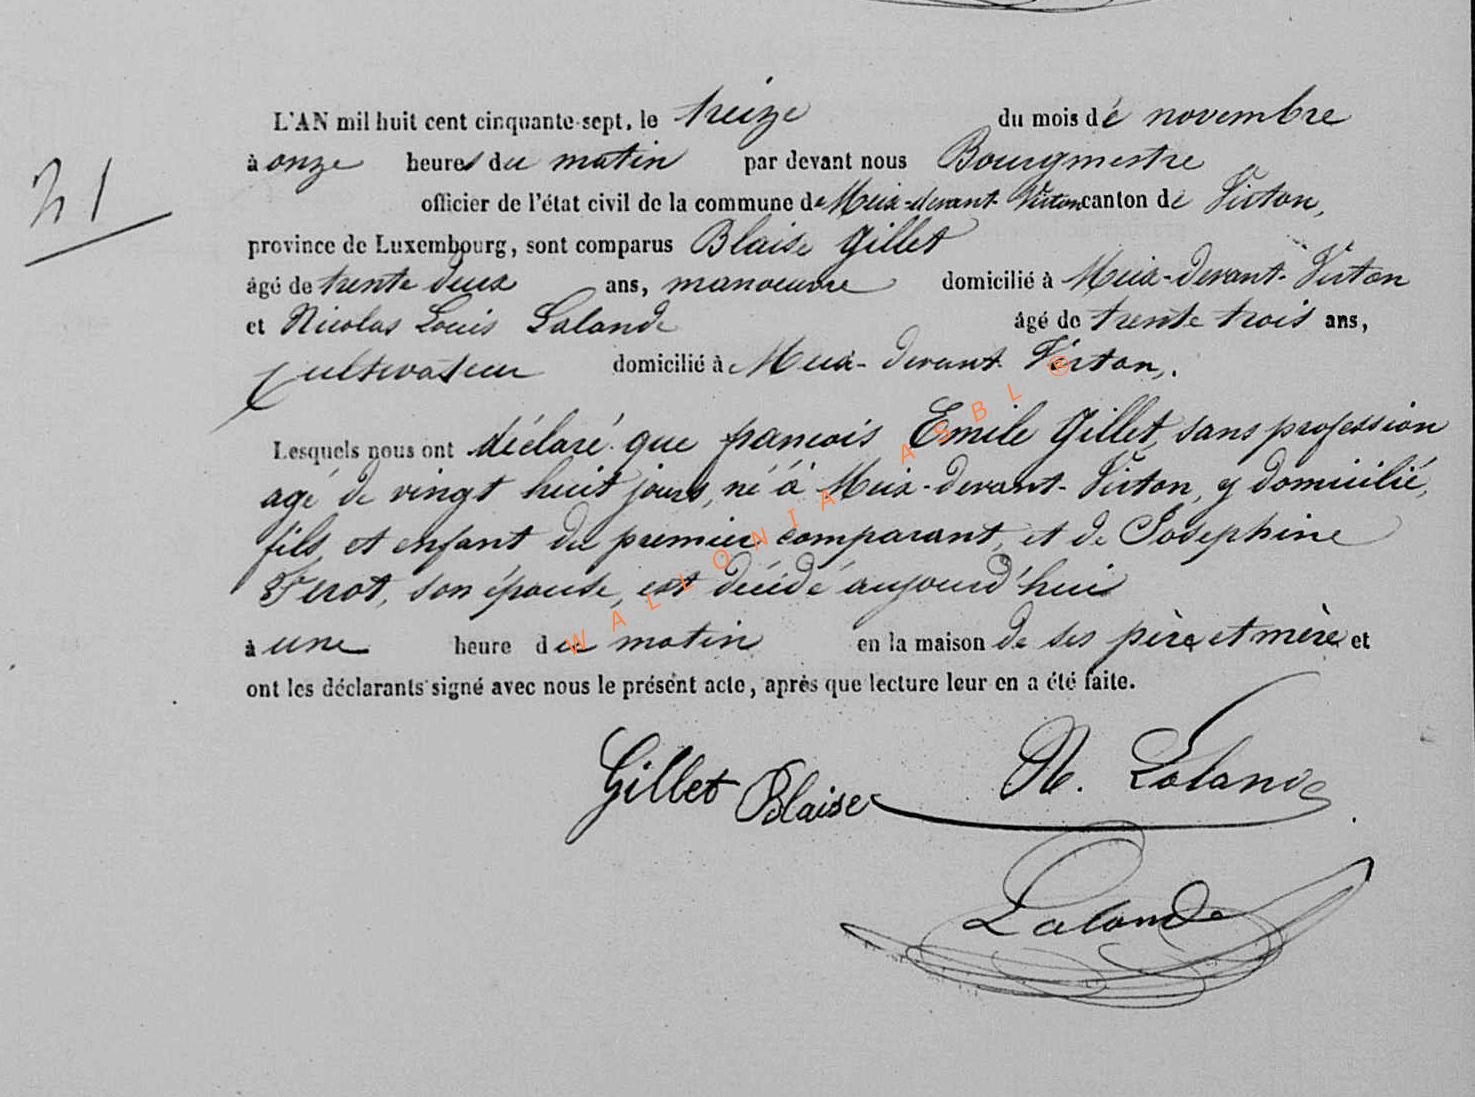 L'AN mil huit cent cinquante-sept, le treize du mois de novembre
à onze heures du matin par devant nous Bourgmestre
officier de l'état civil de la commune de Meix-devant-Virton canton de Virton,
21
province de Luxembourg, sont comparus Blaise Gillet
âgé de trente deux ans, manoeuvre domicilié à Meix-devant-Virton
et Nicolas Louis Lalande âgé de trente trois ans,
Cultivateur domicilié à Meix-devant Virton,.
Lesquels nous ont déclaré que francois Emile Gillet, sans profession
agé de vingt huit jours, né à Meix-devant-Virton, y domicilié,
fils et enfant du premier comparant, et de Josephine
son épouse, est décédé aujourd'hui
à une heure du matin en la maison de ses père et mère et
ont les déclarants signé avec nous le présent acte, après que lecture leur en a été faite.
WALLONIA ASBL ®
Gillet Blaise N. Lalande
Lalande